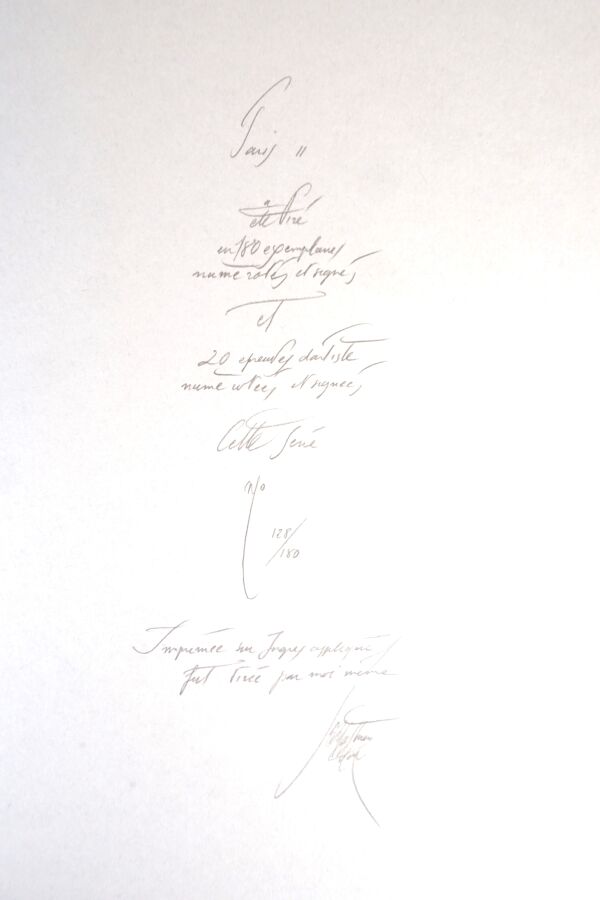 Paris "
a
été tiré
en 180 exemplaires
numérotés et signés
et
20 épreuves d'artiste
numérotées et signées
Cette Série
n/o
128/
180
Imprimée sur Ingres appliqué
fut tirée par moi même